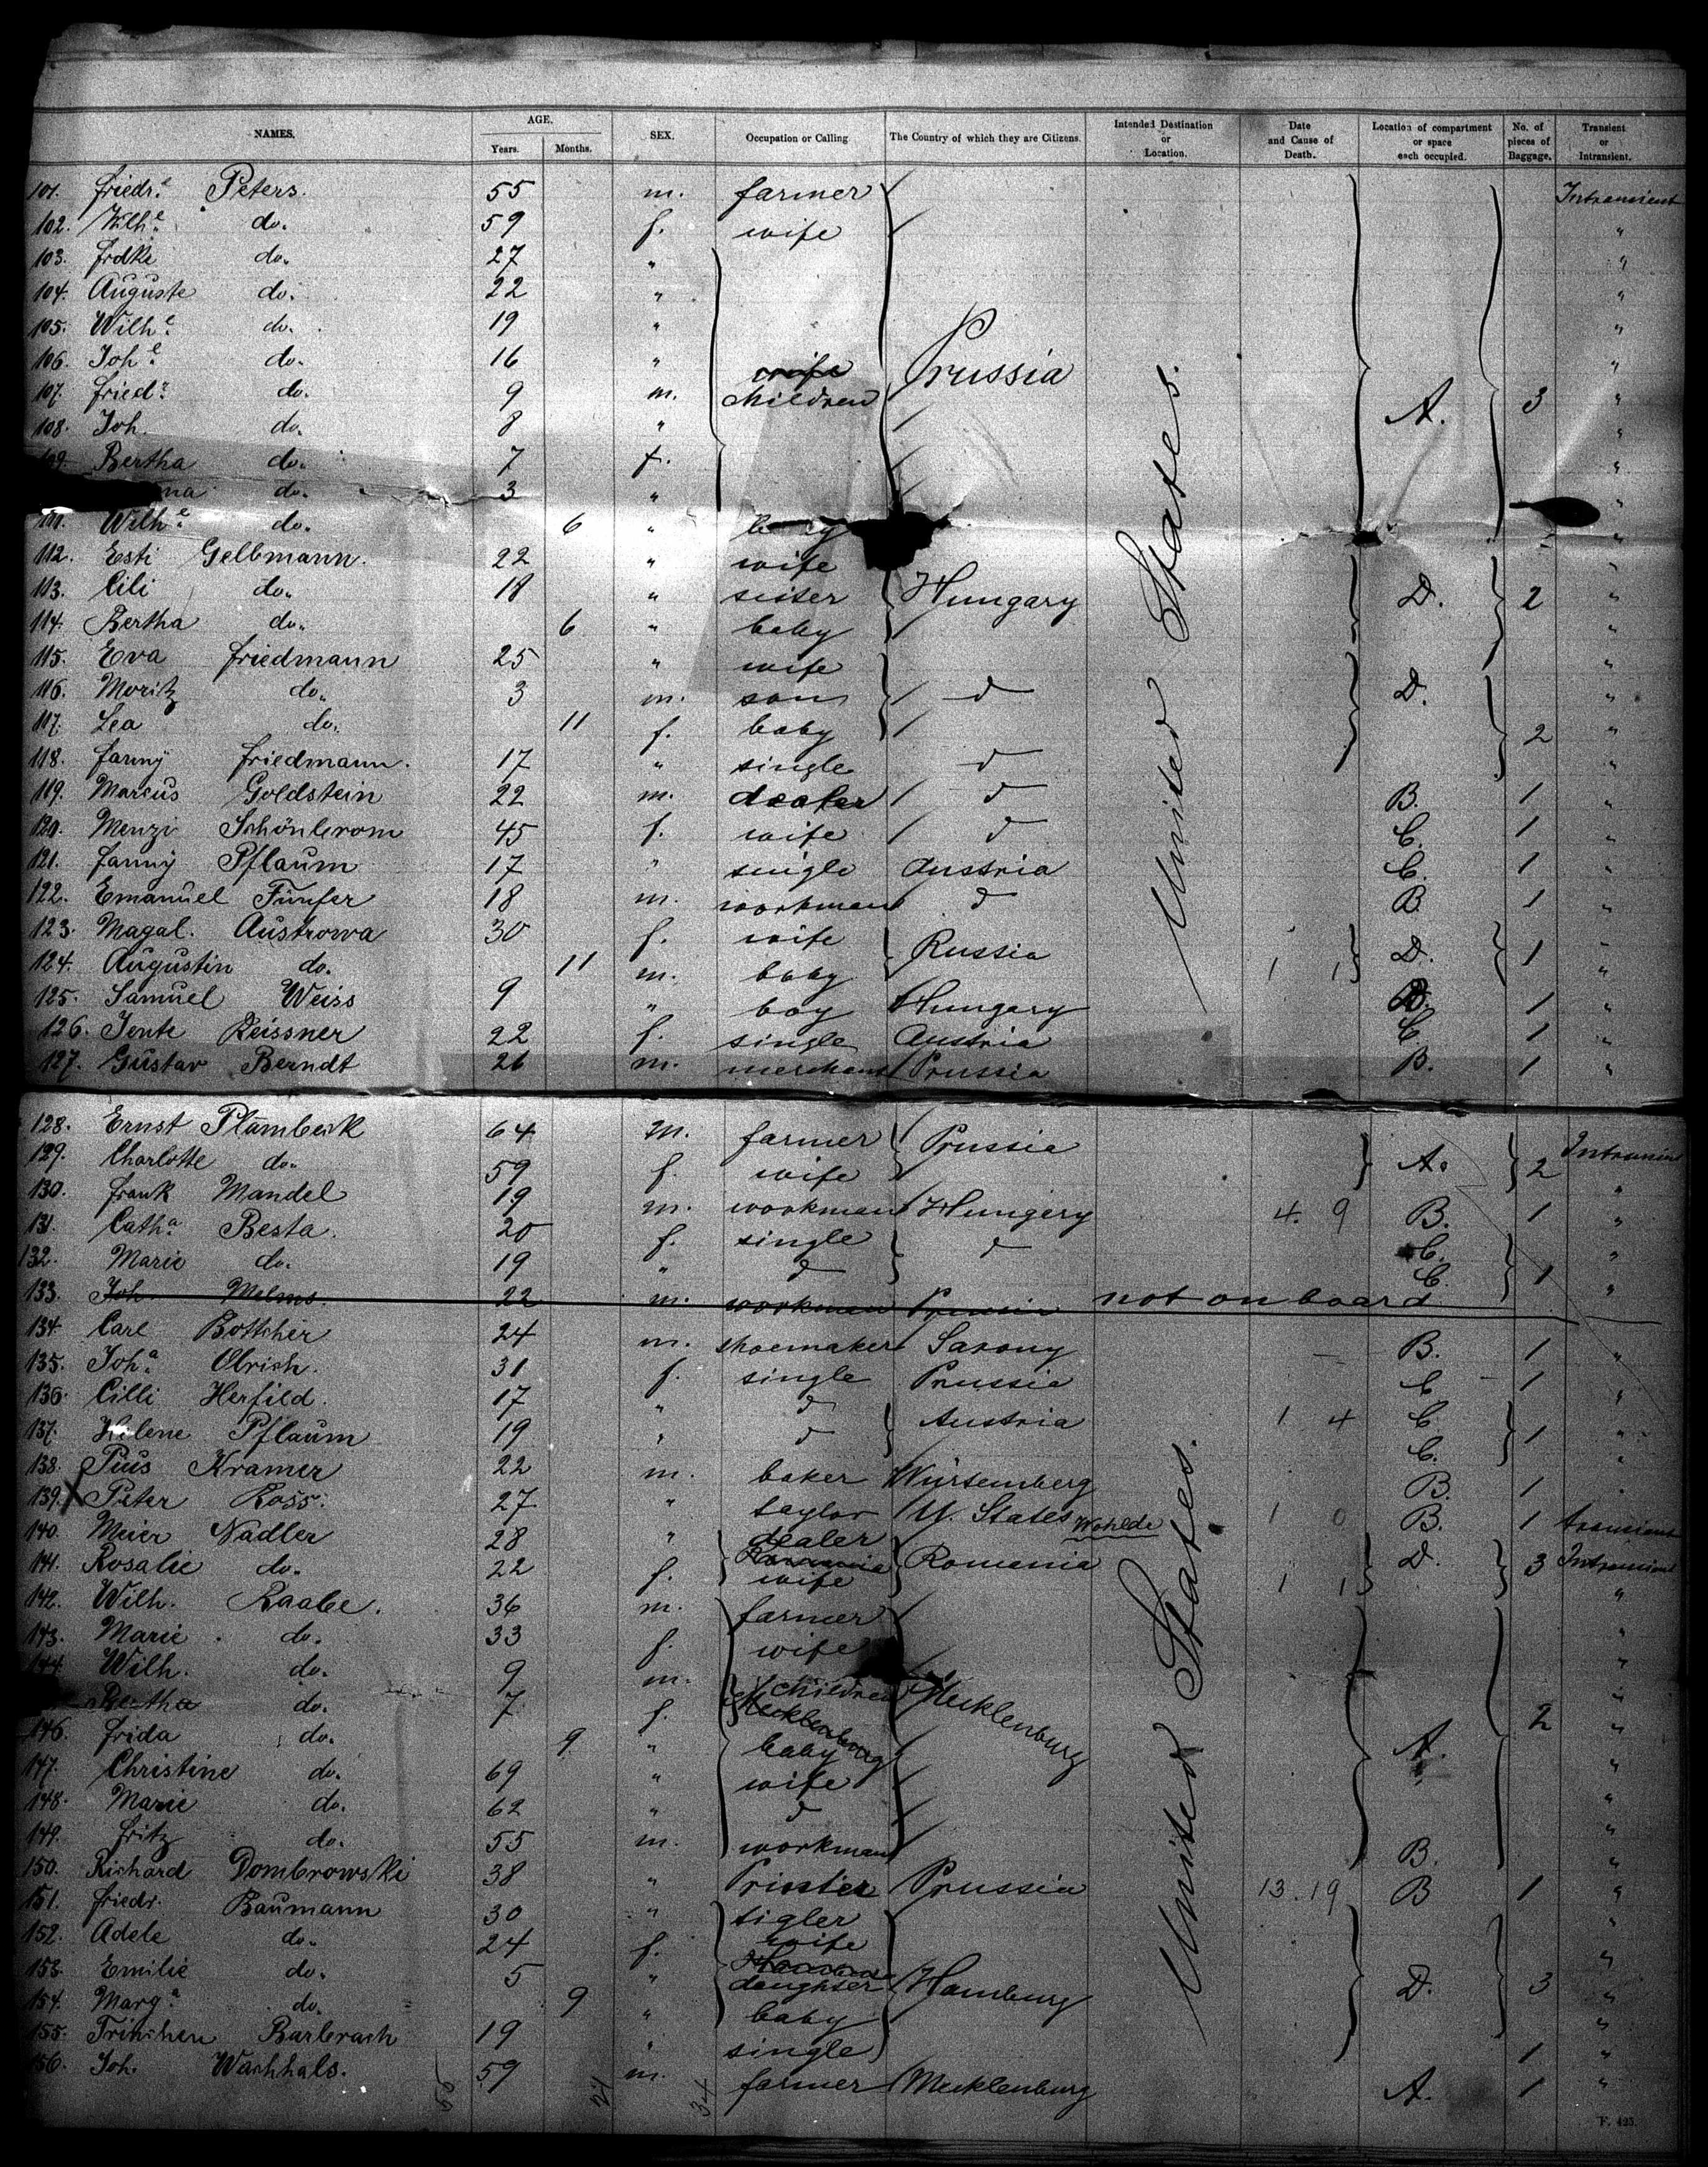 NAMES. AGE. Years. Months. SEX. Occupation or Calling The Country of which they are Citizens. Intended Destination or Location. Date and Cause of Death. Location of compartment or space each occupied. No. of pieces of Baggage. Transient or Intransient.
101. Friedr. Peters. 55 m. farmer Intransient
102. Wilhe. do. 59 f. wife "
103. Frdke do. 27 " "
104. Auguste do. 22 " "
105. Wilhe. do. 19 " "
106. Johe. do. 16 " wife Prussia "
107. Friedr. do. 9 m. children A. 3 "
108. Joh. do. 8 " "
109. Bertha do. 7 f. "
na do. 3 " "
111. Wilhe. do. 6 " "
112. Esti Gelbmann. 22 " wife "
113. Cili do. 18 " sister Hungary D. 2 "
114. Bertha do. 6 " baby "
115. Eva Friedmann 25 " wife "
116. Moritz do. 3 m. son d D. "
117. Lea do. 11 f. baby 2 "
118. Fanny Friedmann. 17 " single d "
119. Marcus Goldstein 22 m. dealer d B. 1 "
120. Menzi Schönbrom 45 f. wife d C. 1 "
121. Fanny Pflaum 17 " single Austria C. 1 "
122. Emanuel Fünfer 18 m. workman d B. 1 "
123. Magal. Austrowa 30 f. wife Russia D. 1 "
124. Augustin do. 11 m. baby 1 1 "
125. Samuel Weiss 9 " boy Hungary D. 1 "
126. Jente Reissner 22 f. single Austria C. 1 "
127. Gustav Berndt 26 m. merchant Prussia B. 1 "
United States.
128. Ernst Plambeck 64 m. farmer Prussia A. 2 Intransient
129. Charlotte do. 59 f. wife "
130. Frank Mandel 19 m. workman Hungery 4. 9 B. 1 "
131. Catha. Besta. 20 f. single d C. "
132. Marie do. 19 " d C. 1 "
133. Joh Melms. 22 m. workman Prussia not on board
134. Carl Bottcher 24 m. shoemaker Saxony B. 1 "
135. Joha. Olrich. 31 f. single Prussia C. 1 "
136. Cilli Herfild. 17 " d Austria 1 4 C "
137. Helene Pflaum 19 " d C. 1 "
138. Pius Kramer 22 m. baker Würtemberg B. 1 "
139. X Peter Ross. 27 " taylor U. States Wohlde 1 0 B. 1 transient
140. Meier Nadler 28 " dealer Romania D. 3 Intransient
141. Rosalie do. 22 f. Romania wife 1 1 "
142. Wilh. Raabe. 36 m. farmer "
143. Marie do. 33 f. wife "
144. Wilh. do. 9 m. children Mecklenburg "
Bertha do. 7 f. Mecklenburg 2 "
146. Frida do. 9 " baby A. "
147. Christine do. 69 " wife "
148. Marie do. 62 " d "
149. Fritz do. 55 m. workman B. "
150. Richard Dombrowski 38 " Printer Prussia 13. 19 B 1 "
151. Friedr. Baumann 30 " sigler "
152. Adele do. 24 f. wife "
153. Emilie do. 5 " daughter Hamburg D. 3 "
154. Marga. do. 9 " baby "
155. Trinchen Barbrach 19 " single 1 "
156. Joh. Wachhals. 59 m. farmer Mecklenburg A. 1 "
United States.
21 34
F. 425.